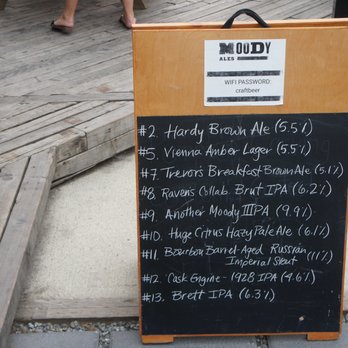 MOODY
ALES
WIFI PASSWORD:
craftbeer
#2. Hardy Brown Ale (5.5%)
#5. Vienna Amber Lager (5.5%)
#7. Trevor's Breakfast Brown Ale (5.1%)
#8. Raven's Collab Brut IPA (6.2%)
#9. Another Moody IIIPA (9.9%)
#10. Huge Citrus Hazy Pale Ale (6.1%)
#11. Bourbon Barrel Aged Russian
Imperial Stout (11%)
#12. Cask Engine - 1928 IPA (4.6%)
#13. Brett IPA (6.3%)